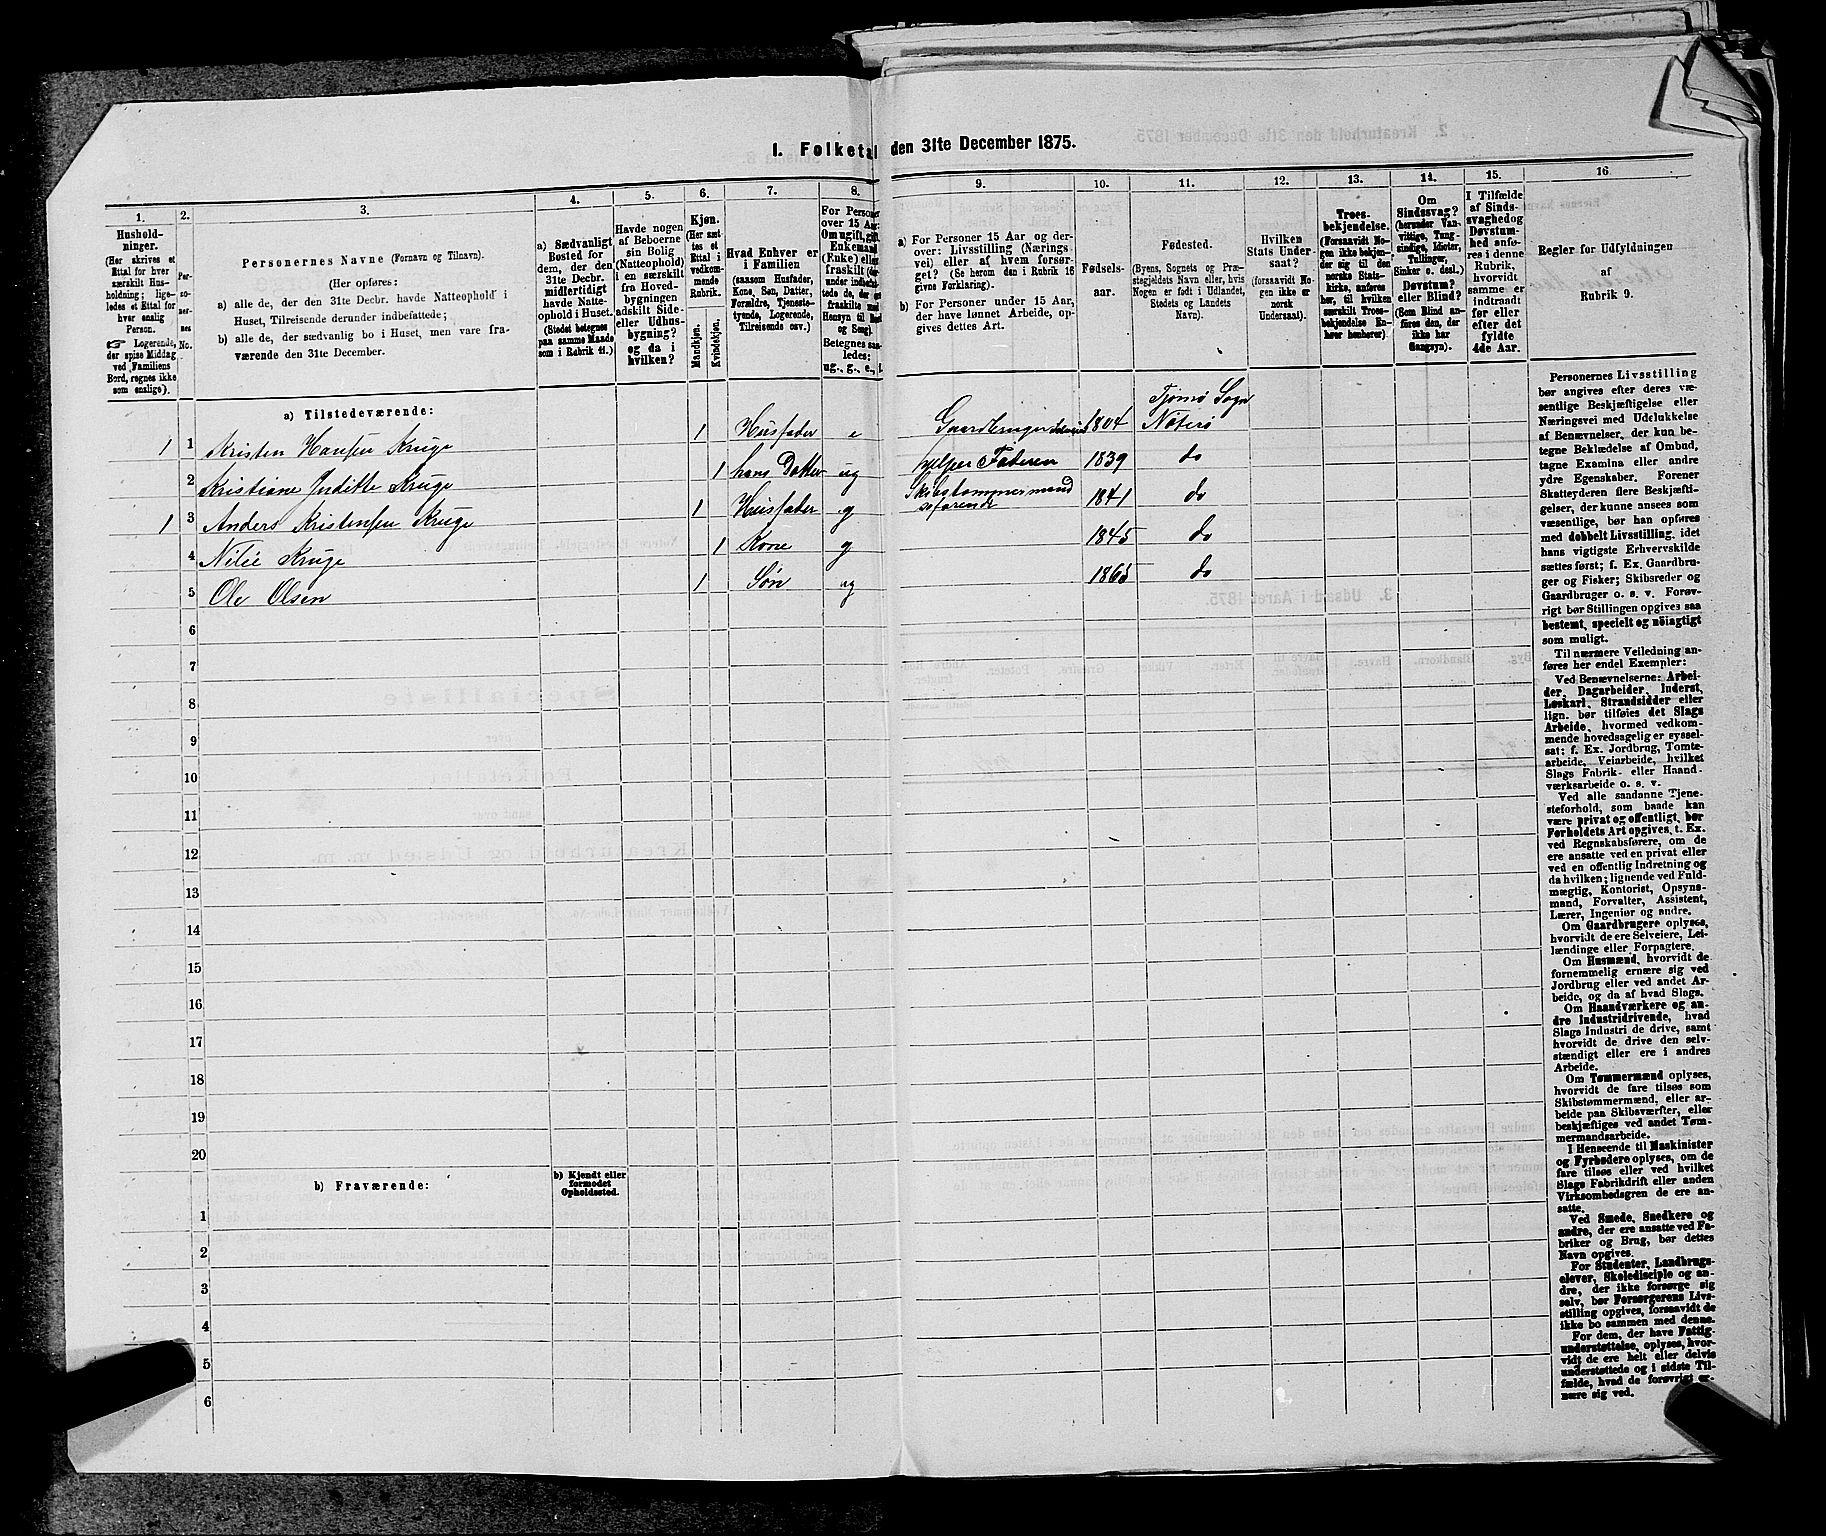 1. Folketal den 31te December 1875.
1.
2.
3.
4.
5.
6.
7.
8.
9.
10.
11.
12.
13.
14.
15.
16
Hushold-
ninger.
(Her skrives et
Ettal for hver
særskilt Hus-
holdning; lige-
ledes et Ettal for
hver enslig
Person.
☞ Logerende,
der spise Middag
ved Familiens
Bord, regnes ikke
som enslige).
Per-
so-
ner-
nes
No.
Personernes Navne (Fornavn og Tilnavn).
(Her opføres:
a) alle de, der den 31te Decbr. havde Natteophold i
Huset, Tilreisende derunder indbefattede;
b) alle de, der sædvanlig bo i Huset, men vare fra-
værende den 31te December.
a) Sædvanligt
Bosted for
dem, der den
31te Decbr.
midlertidigt
havde Natte-
ophold i Huset.
(Stedet betegnes
paa samme Maade
som i Rubrik 11.)
Havde nogen
af Beboerne
sin Bolig
(Natteophold)
i en særskilt
fra Hoved-
bygningen
adskilt Side-
eller Udhus-
bygning?
og da i
hvilken?
Kjøn.
(Her sæt-
tes et
Ettal i
vedkom-
mende
Rubrik.
Mandkjøn.
Kvindekjøn.
Hvad Enhver er
i Familien
(saasom Husfader,
Kone, Søn, Datter,
Forældre, Tjeneste-
tyende, Logerende,
Tilreisende osv.)
For Personer
over 15 Aar:
Om ugift, gift,
Enkemand
(Enke) eller
fraskilt (der-
under indbefat-
tede de, der ere
fraskilte med
Hensyn til Bord
og Seng).
Betegnes saa-
ledes:
ug., g., e., f.
a) For Personer 15 Aar og der-
over: Livsstilling (Nærings-
vei) eller af hvem forsør-
get? (Se herom den i Rubrik 16
givne Forklaring).
b) For Personer under 15 Aar,
der have lønnet Arbeide, op-
gives dettes Art.
Fødsels-
aar.
Fødested.
(Byens, Sognets og Præ-
stegjeldets Navn eller, hvis
Nogen er født i Udlandet,
Stedets og Landets
Navn).
Hvilken
Stats Under-
saat?
(forsaavidt No-
gen ikke er
norsk
Undersaat).
Troes-
bekjendelse.
(Forsaavidt No-
gen ikke bekjen-
der sig til den
norske Stats-
kirke, anføres
her, til hvilken
særskilt Troes-
bekjendelse En-
hver henhører)
Om
Sindssvag?
(herunder Van-
vittige, Tung-
sindige, Idioter,
Tullinger,
Sinker o. desl.)
Døvstum?
eller Blind?
(Som Blind an-
føres den, der
ikke har
Gangsyn).
I Tilfælde
af Sinds-
svaghed og
Døvstum-
hed anfø-
res i denne
Rubrik,
hvorvidt
samme er
indtraadt
før eller
efter det
fyldte
4de Aar.
Regler for Udfyldningen
af
Rubrik 9.
a) Tilstedeværende:
1 1 Kristen Hansen Kruge 1 Husfader e Gaardbruger 1804 Tjømø Sogn Nøterø
2 Kristiane Inditte Kruge 1 hans Datter ug hjelper Faderen 1839 do
1 3 Anders Kristensen Kruge 1 Husfader g Skibstømmermand søfarende 1841 do
4 Kruge 1 Kone g 1845 do
5 Ole Olsen 1 Søn ug 1865 do
6
7
8
9
10
11
12
13
14
15
16
17
18
19
20
b) Fraværende:
b) Kjendt eller
formodet
Opholdssted.
1
2
3
4
5
6
Personernes Livsstilling
bør angives efter deres væ-
sentlige Beskjæftigelse eller
Næringsvei med Udelukkelse
af Benævnelser, der kun be-
tegne Beklædelse af Ombud,
tagne Examina eller andre
ydre Egenskaber. Forener
Skatteyderen flere Beskjæfti-
gelser, der kunne ansees som
væsentlige, bør han opføres
med dobbelt Livsstilling, idet
hans vigtigste Erhvervskilde
sættes først; f. Ex. Gaardbru-
ger og Fisker; Skibsreder og
Gaardbruger o. s. v. Forøv-
rigt bør Stillingen opgives saa
bestemt, specielt og nöiagtigt
som muligt.
Til nærmere Veiledning an-
føres her endel Exempler:
Ved Benævnelserne: Arbei-
der, Dagarbeider, Inderst,
Løskarl, Strandsidder eller
lign. bør tilføies det Slags
Arbeide, hvormed vedkom-
mende hovedsagelig er syssel-
sat; f. Ex. Jordbrug, Tomte-
arbeide, Veiarbeide, hvilket
Slags Fabrik- eller Haand-
værksarbeide o. s. v.
Ved alle saadanne Tjene-
steforhold, som baade kan
være privat og offentligt, bør
Forholdets Art opgives, t. Ex.
ved Regnskabsførere, om de
ere ansatte ved en privat eller
ved en offentlig Indretning og
da hvilken; lignende ved Fuld-
mægtig, Kontorist, Opsyns-
mand, Forvalter, Assistent,
Lærer, Ingeniør og andre.
Om Gaardbrugere oplyses,
hvorvidt de ere Selveiere, Lei-
lændinge eller Forpagtere.
Om Husmænd, hvorvidt de
fornemmelig ernære sig ved
Jordbrug eller ved andet Ar-
beide, og da af hvad Slags.
Om Haandværkere og an-
dre Industridrivende, hvad
Slags Industri de drive, samt
hvorvidt de drive den selv-
stændigt eller ere i andres
Arbeide.
Om Tømmermænd oplyses,
hvorvidt de fare tilsøs som
Skibstømmermænd, eller ar-
beide paa Skibsværfter, eller
beskjæftiges ved andet Tøm-
mermandsarbeide.
I Henseende til Maskinister
og Fyrbødere oplyses, om de
fare tilsøs eller ved hvilket
Slags Fabrikdrift eller anden
Virksombedsgren de ere an-
satte.
Ved Smede, Snedkere og
andre, der ere ansatte ved Fa-
briker og Brug, bør dettes
Navn opgives.
For Studenter, Landbrugs-
elever, Skoledisciple og an-
dre, der ikke forsørge sig
selv, bør Forsørgerens Livs-
stilling opgives, forsaavidt de
ikke bo sammen med denne.
For dem, der have Fattig-
understøttelse, oplyses, hvor-
vidt de ere helt eller delvis
understøttede og i sidste Til-
fælde, hvad de forøvrigt er-
nære sig ved.